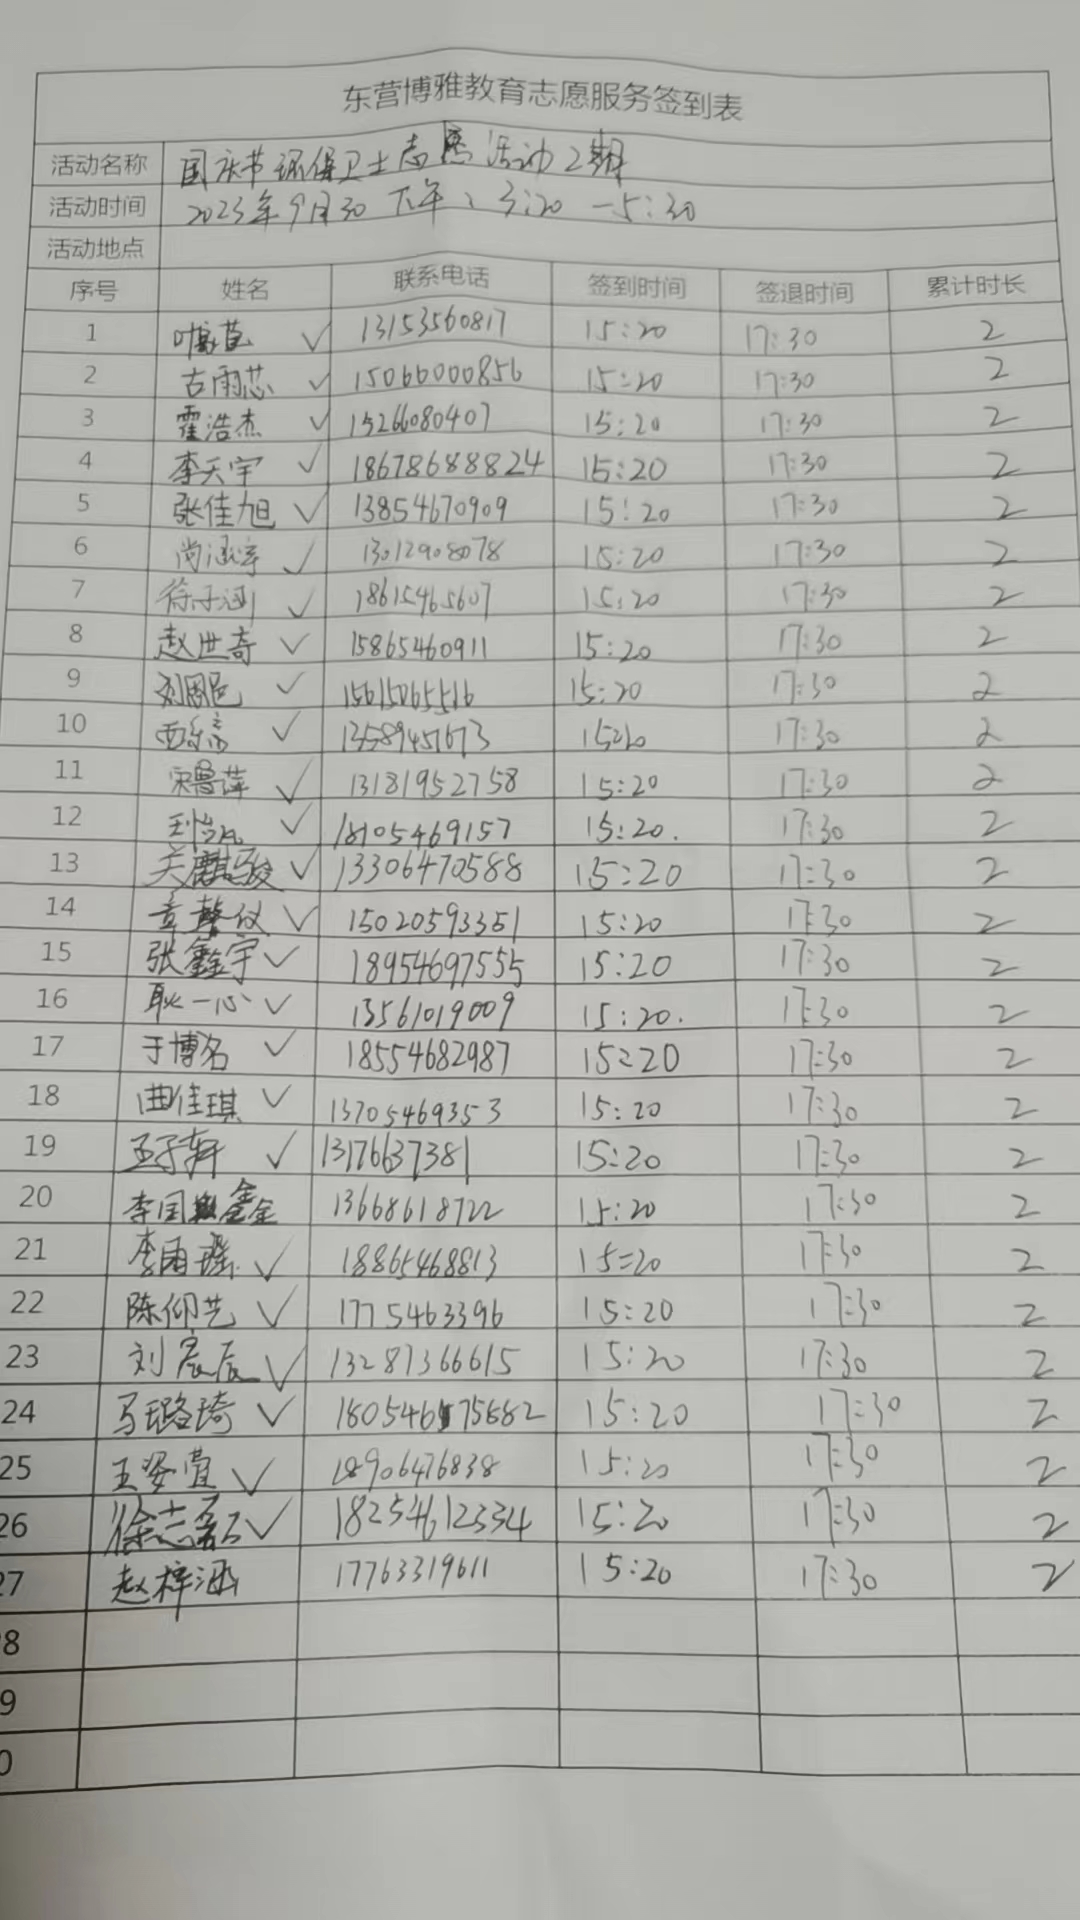 东营博雅教育志愿服务签到表
活动名称 国庆节环保卫士志愿活动2期
活动时间 2023年9月30 下午、3:20—5:30
活动地点
序号 姓名 联系电话 签到时间 签退时间 累计时长
1 13153560817 15:20 17:30 2
2 古雨芯 ✓ 15066000856 15:20 17:30 2
3 霍浩杰 ✓ 15266080407 15:20 17:30 2
4 李天宇 ✓ 18678688824 15:20 17:30 2
5 张佳旭 ✓ 13854670909 15:20 17:30 2
6 尚涵 ✓ 13012908078 15:20 17:30 2
7 徐子涵 ✓ 18615465607 15:20 17:30 2
8 赵世奇 ✓ 15865460911 15:20 17:30 2
9 ✓ 15615065516 15:20 17:30 2
10 ✓ 13589457673 15:20 17:30 2
11 宋鲁萍 ✓ 13181952758 15:20 17:30 2
12 ✓ 18105469157 15:20. 17:30 2
13 关麒骏 ✓ 13306470588 15:20 17:30 2
14 章馨仪 ✓ 15020593351 15:20 17:30 2
15 张鑫宇 ✓ 18954697555 15:20 17:30 2
16 耿一心 ✓ 13561019009 15:20. 17:30 2
17 于博名 ✓ 18554682987 15:20 17:30 2
18 曲佳琪 ✓ 13705469353 15:20 17:30 2
19 王子轩 ✓ 13176637381 15:20 17:30 2
20 李国鑫 13668618722 15:20 17:30 2
21 李雨瑶 ✓ 18865468813 15:20 17:30 2
22 陈仰艺 ✓ 1775463396 15:20 17:30 2
23 刘宸辰 ✓ 13287366615 15:20 17:30 2
24 马璐琦 ✓ 15:20 17:30 2
25 王姿萱 ✓ 18906476838 15:20 17:30 2
26 徐志磊 ✓ 18254612334 15:20 17:30 2
27 赵梓涵 17763319611 15:20 17:30 2
8
9
0